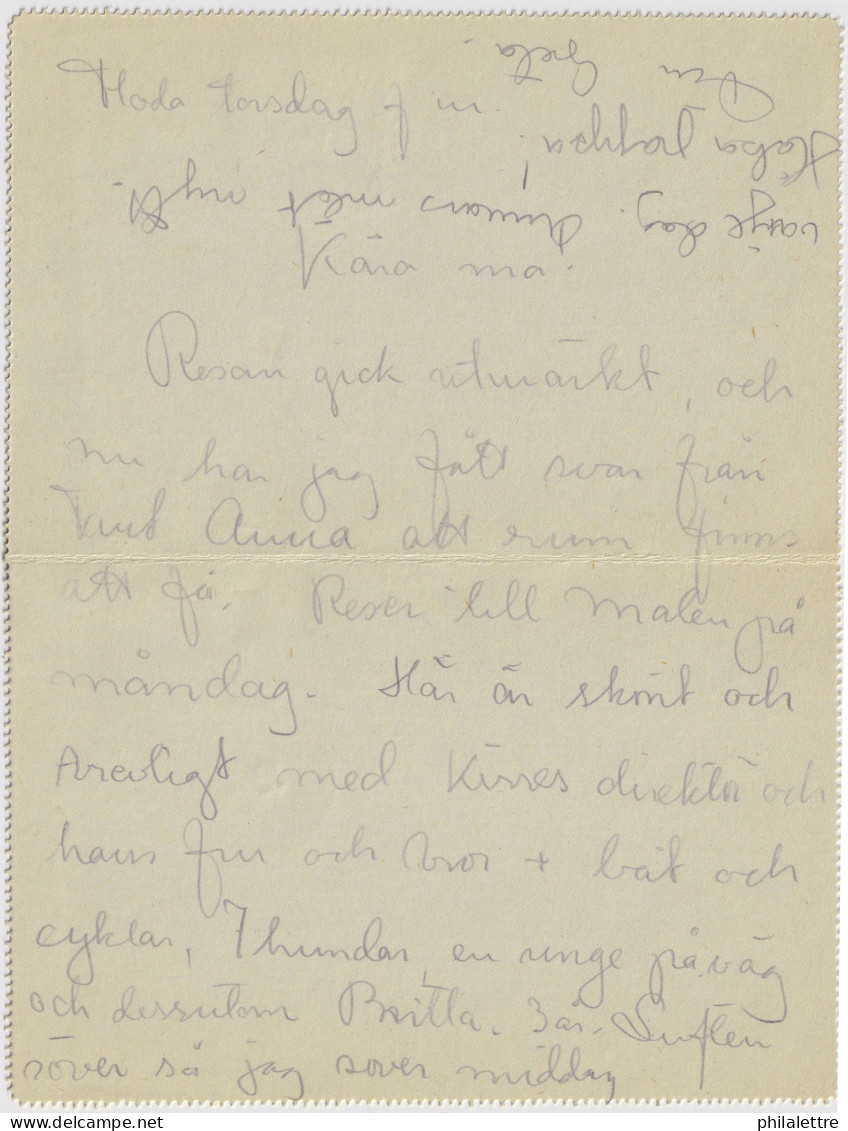 torsdag f m.
Kära ma.
Resan gick utmärkt, och
nu har jag fått svar från
Anna att rum finns
att få. Reser till Malen på
måndag. Här är skönt och
trevligt med Kisses direktör och
hans fru och bror + båt och
cyklar, 7 hundar, en unge på väg
och dessutom Britta. 3 år. Luften
söver så jag sover middag
varje dag. Annars intet nytt.
Hälsa pappa!
Din Greta.
philalettre